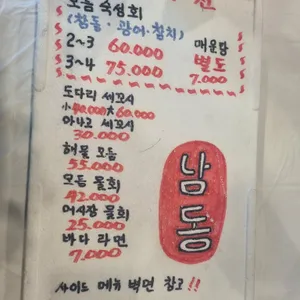 오늘 숙성회
(참돔·광어·참치)
2~3 60.000
3~4 75.000
매운탕
별도
7.000
도다리 세꼬시
小 40.000 大 60.000
아나고 세꼬시
30.000
해물 모듬
55.000
모듬 물회
42.000
어시장 물회
25.000
바다 라면
7.000
남동
사이드 메뉴 벽면 참고!!